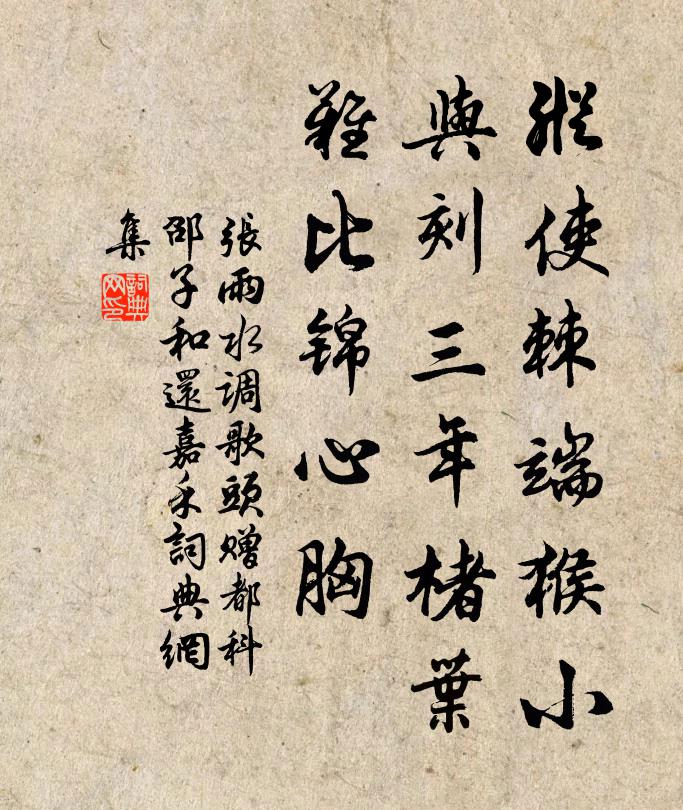 縱使棘端猴小
與刻三年楮葉
難比錦心胸
張雨水調歌頭贈都科
邵子和還嘉禾詞典網
集
詞典
网印